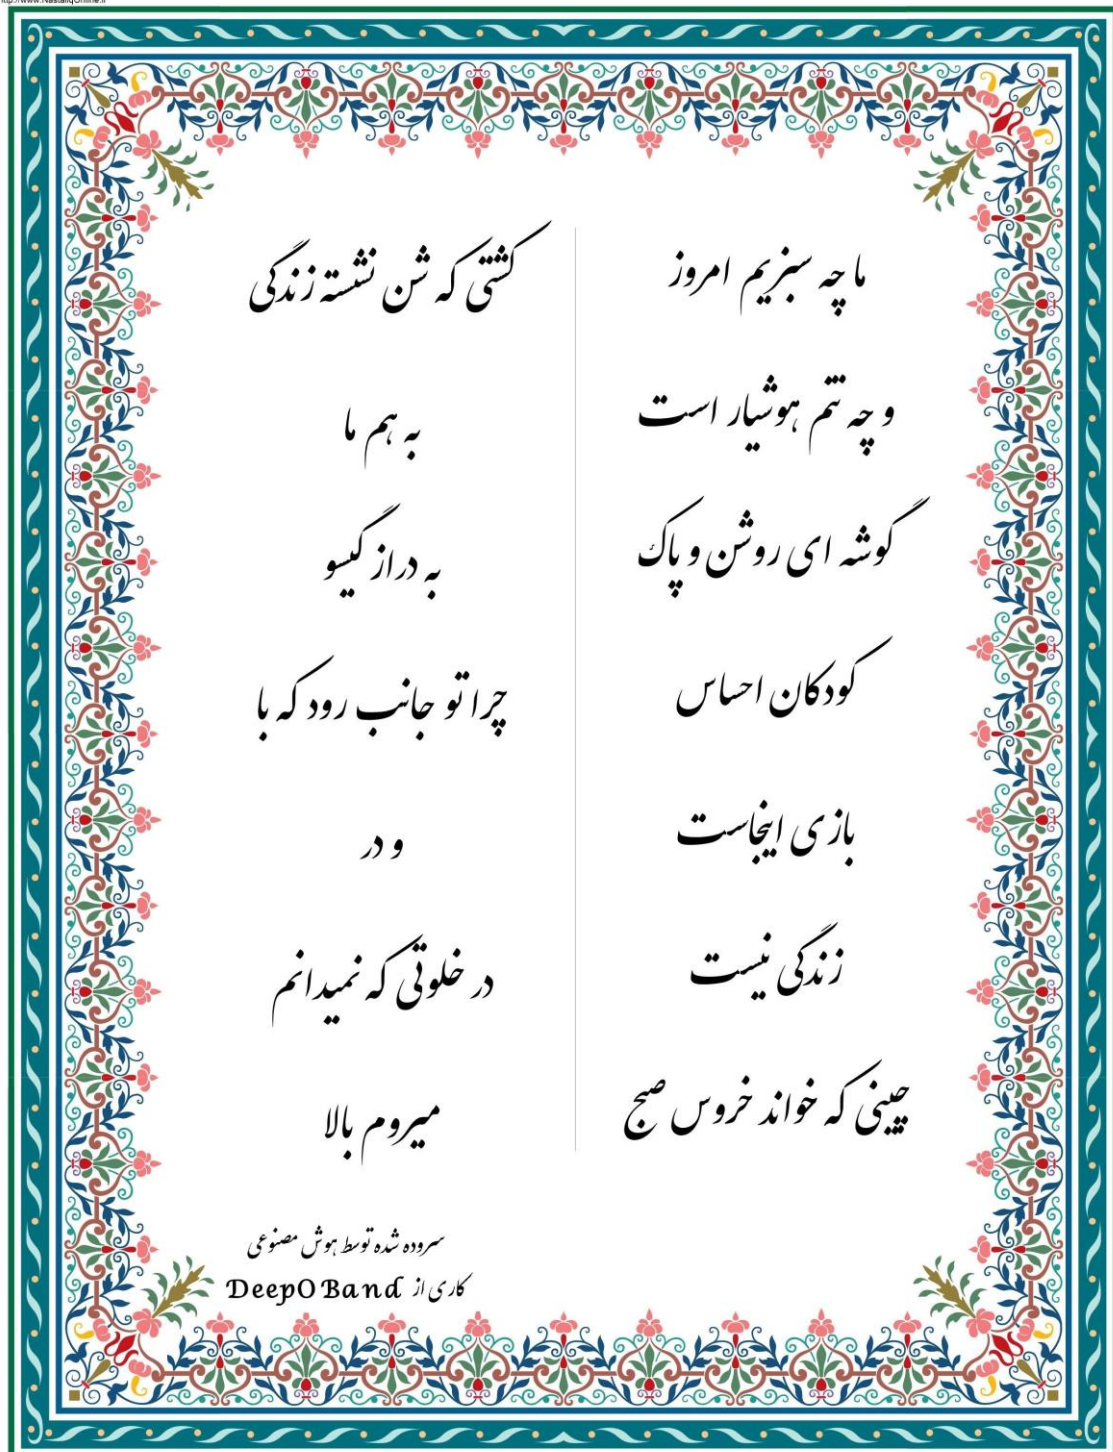 http://www.NastaliqOnline.ir
ما چه سبزیم امروز
و چه تنم هوشیار است
گوشه ای روشن و پاک
کودکان احساس
بازی اینجاست
زندگی نیست
چینی که خواند خروس صبح
کشتی که شن نشسته زندگی
به هم ما
به دراز گیسو
چرا تو جانب رود که با
و در
در خلوتی که نمیدانم
میروم بالا
سروده شده توسط هوش مصنوعی
کاری از DeepOBand